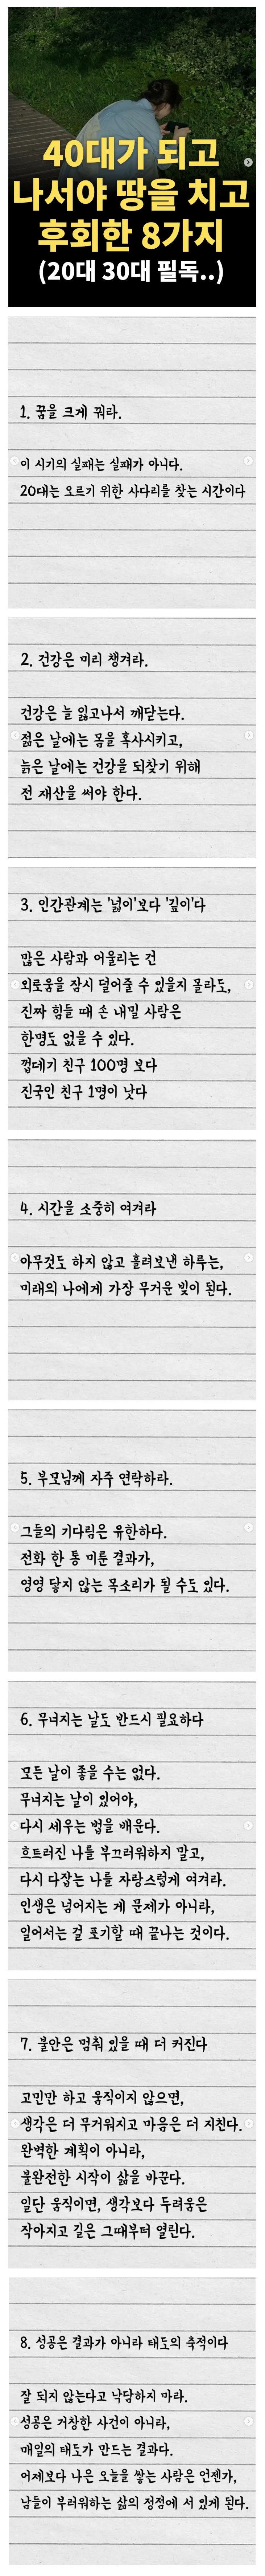 40대가 되고
나서야 땅을 치고
후회한 8가지
(20대 30대 필독..)
1. 꿈을 크게 꿔라.
이 시기의 실패는 실패가 아니다.
20대는 오르기 위한 사다리를 찾는 시간이다
2. 건강은 미리 챙겨라.
건강은 늘 잃고나서 깨닫는다.
젊은 날에는 몸을 혹사시키고,
늙은 날에는 건강을 되찾기 위해
전 재산을 써야 한다.
3. 인간관계는 '넓이'보다 '깊이'다
많은 사람과 어울리는 건
외로움을 잠시 덜어줄 수 있을지 몰라도,
진짜 힘들 때 손 내밀 사람은
한명도 없을 수 있다.
껍데기 친구 100명 보다
진국인 친구 1명이 낫다
4. 시간을 소중히 여겨라
아무것도 하지 않고 흘려보낸 하루는,
미래의 나에게 가장 무거운 빚이 된다.
5. 부모님께 자주 연락하라.
그들의 기다림은 유한하다.
전화 한 통 미룬 결과가,
영영 닿지 않는 목소리가 될 수도 있다.
6. 무너지는 날도 반드시 필요하다
모든 날이 좋을 수는 없다.
무너지는 날이 있어야,
다시 세우는 법을 배운다.
흐트러진 나를 부끄러워하지 말고,
다시 다잡는 나를 자랑스럽게 여겨라.
인생은 넘어지는 게 문제가 아니라,
일어서는 걸 포기할 때 끝나는 것이다.
7. 불안은 멈춰 있을 때 더 커진다
고민만 하고 움직이지 않으면,
생각은 더 무거워지고 마음은 더 지친다.
완벽한 계획이 아니라,
불완전한 시작이 삶을 바꾼다.
일단 움직이면, 생각보다 두려움은
작아지고 길은 그때부터 열린다.
8. 성공은 결과가 아니라 태도의 축적이다
잘 되지 않는다고 낙담하지 마라.
성공은 거창한 사건이 아니라,
매일의 태도가 만드는 결과다.
어제보다 나은 오늘을 쌓는 사람은 언젠가,
남들이 부러워하는 삶의 정점에 서 있게 된다.